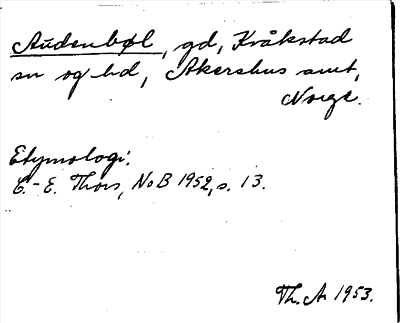 Audenbøl, gd, Kråkstad
sn og hd, Akershus amt,
Norge.
Etymologi:
C.-E. Thors, NoB 1952, s. 13.
Th. A. 1953.